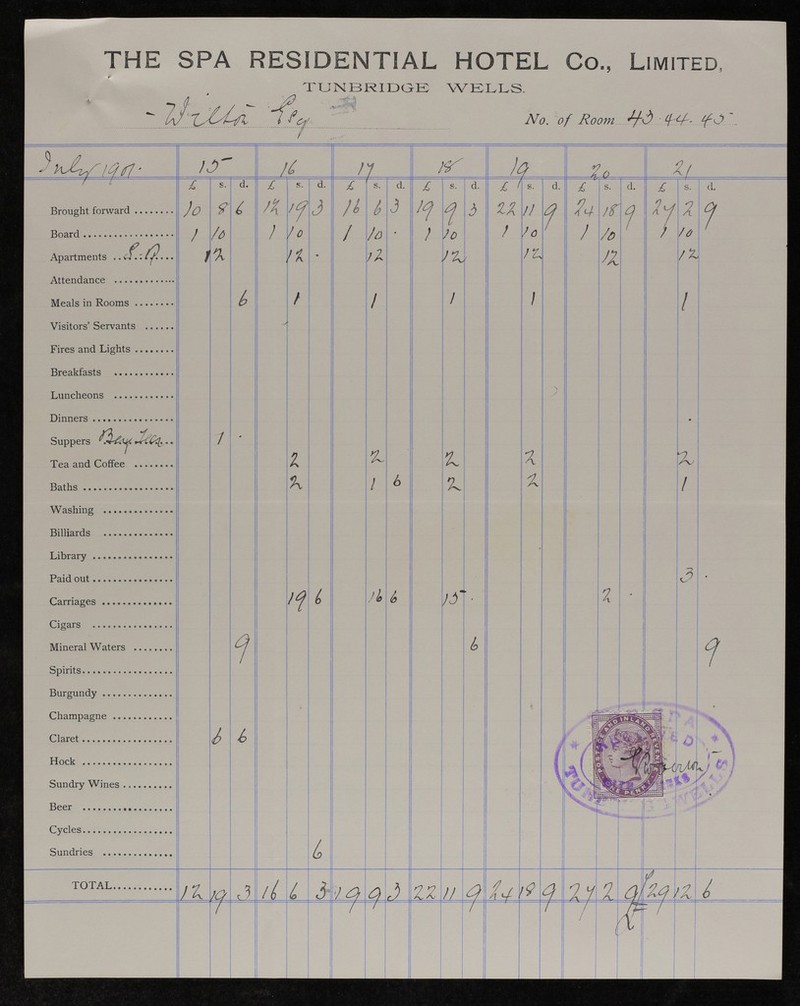 THE SPA RESIDENTIAL HOTEL Co., LIMITED,
TUNBRIDGE WELLS.
- Wilton Esq No. of Room 43 44. 45
July 1901. 15 16 17 18 19 20 21
£ s. d. £ s. d. £ s. d. £ s. d. £ s. d. £ s. d. £ s. d.
Brought forward ........ 10 8 6 12 19 3 16 6 3 19 9 3 22 11 9 24 18 9 27 2 9
Board .................. 1 10 1 10 1 10 - 1 10 1 10 1 10 1 10
Apartments ... 12 12 - 12 12 12 12 12
Attendance .............
Meals in Rooms ........ 6 1 1 1 1 1
Visitors' Servants ......
Fires and Lights ........
Breakfasts ............
Luncheons ............
Dinners ................
Suppers ... 1 -
Tea and Coffee ........ 2 2 2 2 2
Baths .................. 2 1 6 2 2 1
Washing ..............
Billiards ..............
Library ................
Paid out ................ 3 -
Carriages .............. 19 6 16 6 15 - 2 -
Cigars ................
Mineral Waters ........ 9 6 9
Spirits..................
Burgundy ..............
Champagne ............
Claret .................. 6 6
Hock ..................
Sundry Wines ..........
Beer ..................
Cycles..................
Sundries .............. 6
POSTAGE AND INLAND REVENUE
ONE PENNY
SPA
TUNBRIDGE WELLS
TOTAL............ 12 19 3 16 6 3 19 9 3 22 11 9 24 18 9 27 2 9 £29 12 6